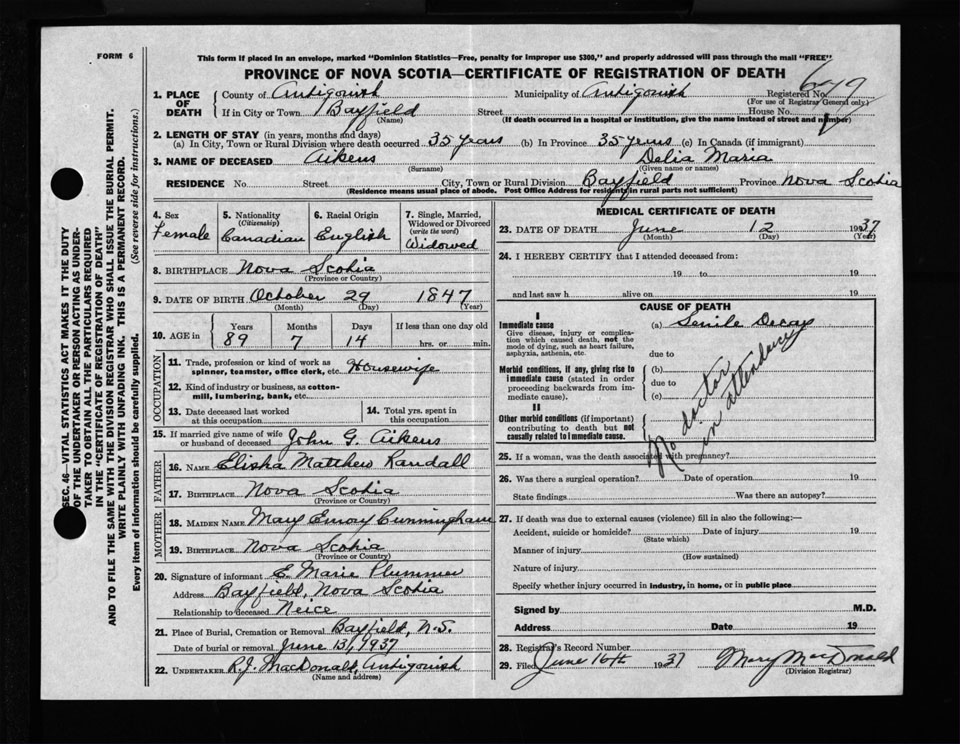 FORM 6
This form if placed in an envelope, marked "Dominion Statistics—Free, penalty for improper use $300," and properly addressed will pass through the mail "FREE"
PROVINCE OF NOVA SCOTIA—CERTIFICATE OF REGISTRATION OF DEATH
1. PLACE OF DEATH
County of Antigonish Municipality of Antigonish Registered No.
(For use of Registrar General only.)
If in City or Town Bayfield Street House No.
(Name) (If death occurred in a hospital or institution, give the name instead of street and number)
2. LENGTH OF STAY (in years, months and days)
(a) In City, Town or Rural Division where death occurred 35 years (b) In Province 35 years (c) In Canada (if immigrant)
3. NAME OF DECEASED Aikens Delia Maria
(Surname) (Given name or names)
RESIDENCE No. Street City, Town or Rural Division Bayfield Province Nova Scotia
(Residence means usual place of abode. Post Office Address for residents in rural parts not sufficient)
4. Sex
Female
5. Nationality
(Citizenship)
Canadian
6. Racial Origin
English
7. Single, Married, Widowed or Divorced
(write the word)
Widowed
8. BIRTHPLACE Nova Scotia
(Province or Country)
9. DATE OF BIRTH October 29 1847
(Month) (Day) (Year)
10. AGE in
Years Months Days If less than one day old
89 7 14 hrs. or min.
OCCUPATION
11. Trade, profession or kind of work as
spinner, teamster, office clerk, etc. Housewife
12. Kind of industry or business, as cotton-
mill, lumbering, bank, etc.
13. Date deceased last worked
at this occupation
14. Total yrs. spent in
this occupation
15. If married give name of wife
or husband of deceased John G. Aikens
FATHER
16. NAME Elisha Matthew Randall
17. BIRTHPLACE Nova Scotia
(Province or Country)
MOTHER
18. MAIDEN NAME Mary Emory Cunningham
19. BIRTHPLACE Nova Scotia
(Province or Country)
20. Signature of informant E. Marie Plummer
Address Bayfield, Nova Scotia
Relationship to deceased Neice
21. Place of Burial, Cremation or Removal Bayfield, N.S.
Date of burial or removal June 13, 1937
22. UNDERTAKER R.J. MacDonald, Antigonish
(Name and address)
MEDICAL CERTIFICATE OF DEATH
23. DATE OF DEATH June 12 1937
(Month) (Day) (Year)
24. I HEREBY CERTIFY that I attended deceased from:
19 to 19
and last saw h alive on 19
CAUSE OF DEATH
I
Immediate cause
(a) Senile Decay
Give disease, injury or complica-
tion which caused death, not the
mode of dying, such as heart failure,
asphyxia, asthenia, etc.
due to
Morbid conditions, if any, giving rise to
immediate cause (stated in order
proceeding backwards from im-
mediate cause).
(b)
due to
(c)
II
Other morbid conditions (if important)
contributing to death but not
causally related to immediate cause.
No doctor
in attendance
25. If a woman, was the death associated with pregnancy?
26. Was there a surgical operation? Date of operation 19
State findings Was there an autopsy?
27. If death was due to external causes (violence) fill in also the following:—
Accident, suicide or homicide? Date of injury 19
(State which)
Manner of injury
(How sustained)
Nature of injury
Specify whether injury occurred in industry, in home, or in public place
Signed by M.D.
Address Date 19
28. Registrar's Record Number
29. Filed June 16th 1937 Mary MacDonald
(Division Registrar)
SEC. 46—VITAL STATISTICS ACT MAKES IT THE DUTY
OF THE UNDERTAKER OR PERSON ACTING AS UNDER-
TAKER TO OBTAIN ALL THE PARTICULARS REQUIRED
IN THE "CERTIFICATE OF REGISTRATION OF DEATH"
AND TO FILE THE SAME WITH THE DIVISION REGISTRAR WHO SHALL ISSUE THE BURIAL PERMIT.
WRITE PLAINLY WITH UNFADING INK. THIS IS A PERMANENT RECORD.
Every item of information should be carefully supplied. (See reverse side for instructions.)